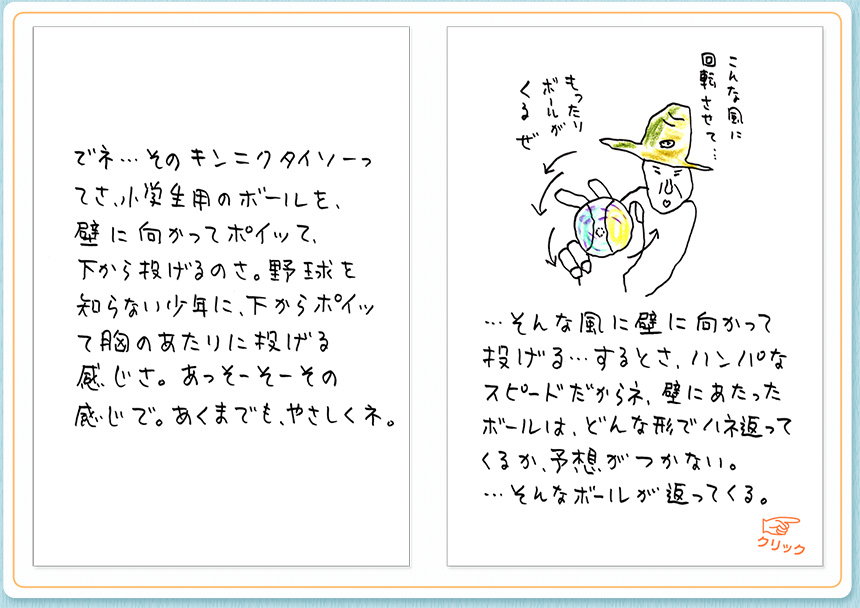 でネ…そのキンニクタイソーっ
てさ、小学生用のボールを、
壁に向かってポイッて、
下から投げるのさ。野球を
知らない少年に、下からポイッ
て胸のあたりに投げる
感じさ。あっそーそーその
感じで。あくまでも、やさしくネ。
こんな風に
回転させて…
もったり
ボールが
くるぜ
…そんな風に壁に向かって
投げる…するとさ、ハンパな
スピードだからネ、壁にあたった
ボールは、どんな形でハネ返って
くるか、予想がつかない。
…そんなボールが返ってくる。
クリック